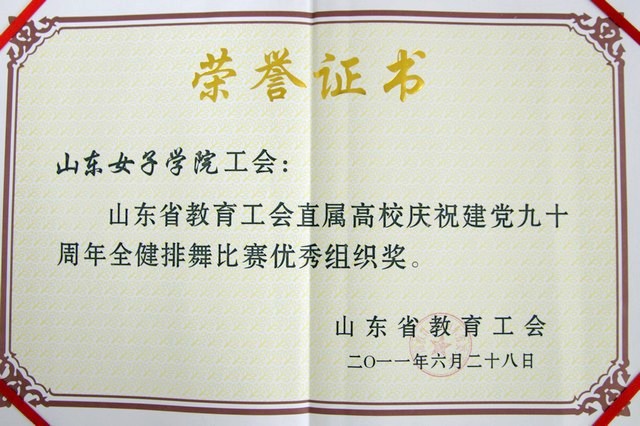 荣誉证书
山东女子学院工会：
山东省教育工会直属高校庆祝建党九十
周年全健排舞比赛优秀组织奖。
山东省教育工会
二〇一一年六月二十八日